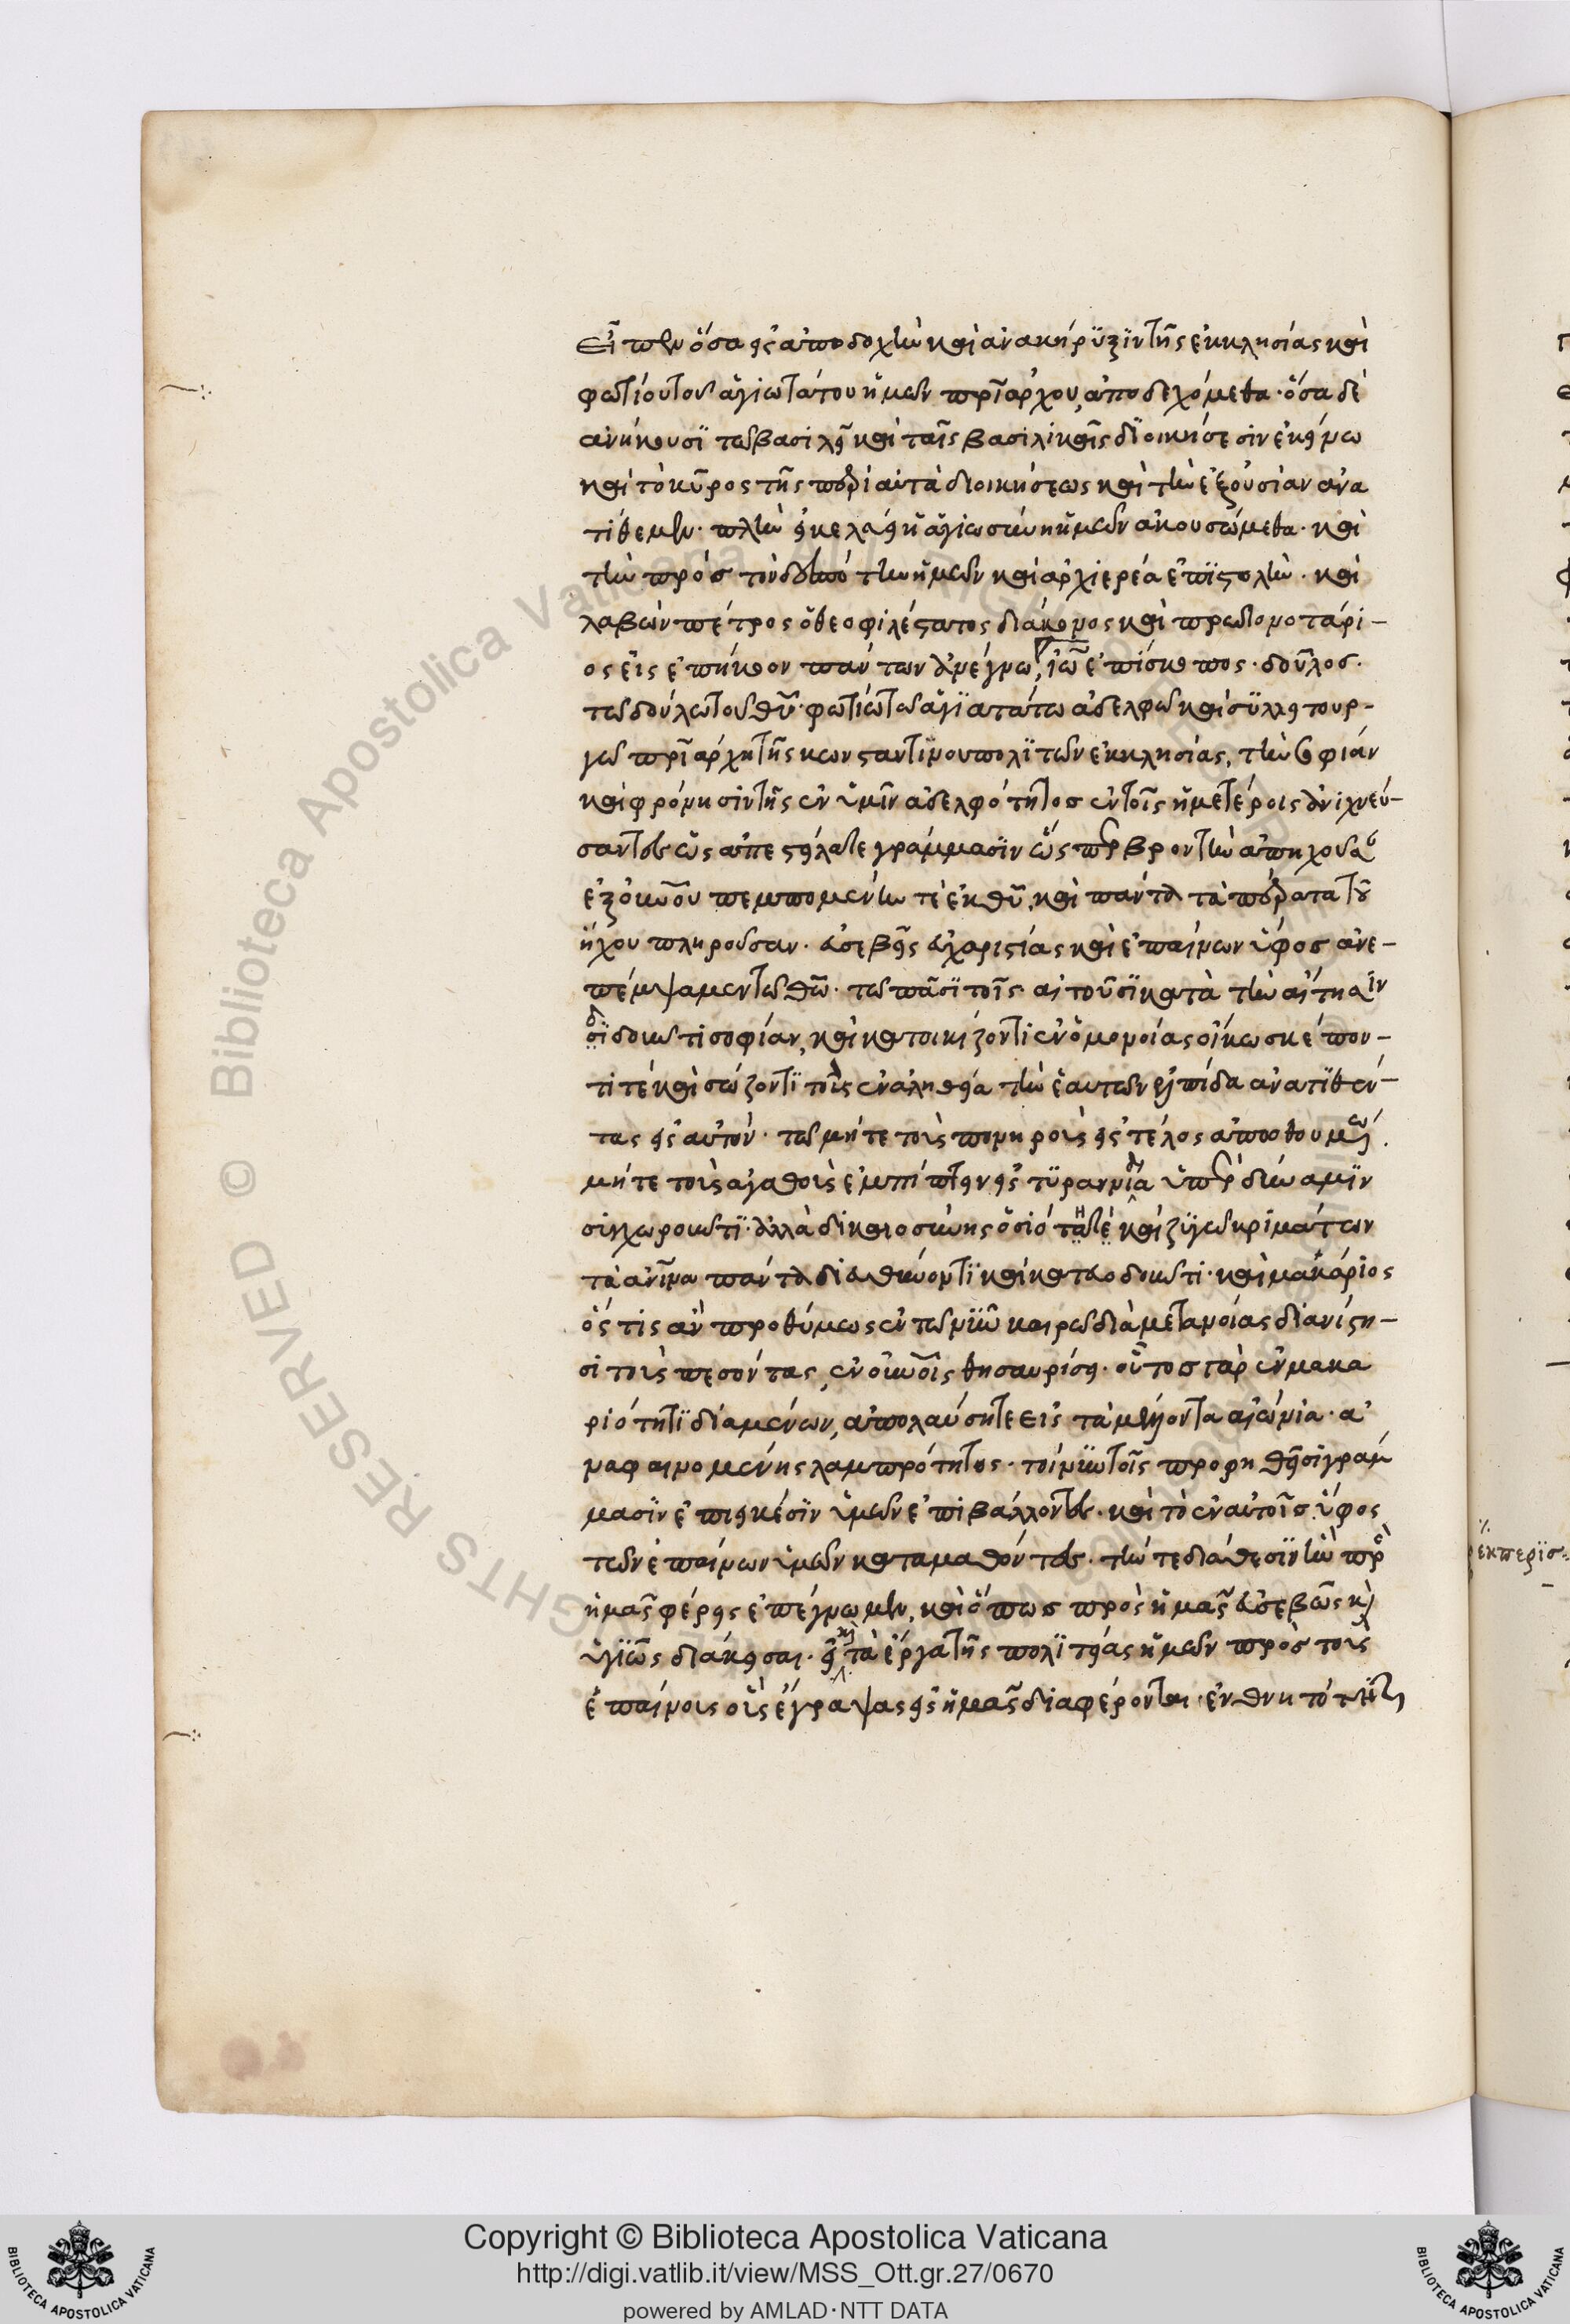 εἶπεν ὅσα εἰς ἀποδοχὴν καὶ ἀνακήρυξιν τῆς ἐκκλησίας καὶ
φωτίου τοῦ ἁγιωτάτου ἡμῶν πριάρχου, ἀποδεχόμεθα· ὅσα δὲ
ἀνήκουσι τῷ βασιλεῖ καὶ ταῖς βασιλικαῖς διοικήσεσιν ἐκείνω
καὶ τὸ κῦρος τῆς περὶ αὐτὰ διοικήσεως καὶ τὴν ἐξουσίαν ἀνα
τίθεμεν· πλὴν ἡ ἁγιωσύνη ἡμῶν ἀκουσώμεθα· καὶ
τὴν πρὸς τὸν δεσπότην ἡμῶν καὶ ἀρχιερέα ἐπιστολὴν· καὶ
λαβὼν πέτρος ὁ θεοφιλέστατος διάκονος καὶ πρωτονοτάρι-
ος εἰς ἐπήκοον πάντων ἀνέγνω, ἰωῦ ἐπίσκοπος· δοῦλος·
τῶν δούλων τοῦ θυ· φωτίω τῶ ἁγιωτάτω ἀδελφῶ καὶ συλλειτουρ-
γῶ πριάρχη τῆς κωνσταντινουπολιτῶν ἐκκλησίας, τὴν σοφίαν
καὶ φρόνησιν τῆς ἐν ὑμῖν ἀδελφότητος ἐν τοῖς ἡμετέροις ἀνιχνεύ-
σαντες ὡς ἀπεστείλατε γράμμασιν ὥσπερ βροντὴν ἀπηχοῦσαν
ἐξ οὐνοῦ πεμπομένην τὲ ἐκ θυ, καὶ πάντα τὰ πέρατα τοῦ
ἤχου πληροῦσαν· εὐσεβεῖς εὐχαριστίας καὶ ἐπαίνων ὕφος ἀνε-
πέμψαμεν τῶ θῶ· τῶ πᾶσι τοῖς αἰτοῦσι κατὰ τὴν αἴτησιν
διδοῦντι σοφίαν, καὶ κατοικίζοντι ἐν ὁμονοίας οἴκω σκέπον-
τι τὲ καὶ σώζοντι τοὺς ἐν ἀληθεία τὴν ἑαυτῶν ἐλπίδα ἀνατιθέν-
τας εἰς αὐτόν· τῶ μήτε τοὺς πονηροὺς εἰς τέλος ἀπωθουμένω·
μήτε τοὺς ἀγαθοὺς ἐμπίπτειν εἰς τυραννίδα ὑπὲρ δύναμιν
συγχωροῦντι· ἀλλὰ δικαιοσύνης ὁσιότητι καὶ ζυγῶ κριμάτων
τὰ ἀνινα πάντα διευθύνοντι καὶ κατευοδοῦντι· καὶ μακάριος
ὅς τις ἂν προθύμως ἐν τῶ νῦν καιρῶ διὰ μετανοίας διανίστη-
σι τοὺς πεσόντας, ἐν οὐνοῖς θησαυρίσει· οὗτος γὰρ ἐν μακα
ριότητι διαμένων, ἀπολαύσηται εἰς τὰ μέλλοντα αἰώνια· ἀ
ναφαινομένης λαμπρότητος· τοίνυν τοῖς προρηθεῖσι γράμ
μασιν ἐπιεικέσιν ὑμῶν ἐπιβάλλοντες· καὶ τὸ ἐν αὐτοῖς ὕφος
τῶν ἐπαίνων ὑμῶν καταμαθόντες· τήν τε διάθεσιν ἣν πρὸς
ἡμᾶς φέρεις ἐπέγνωμεν, καὶ ὅπως πρὸς ἡμᾶς εὐσεβῶς καὶ
ὑγιῶς διάκεισαι· εἰ καὶ τὰ ἔργα τῆς πολιτείας ἡμῶν πρὸς τοὺς
ἐπαίνους οὓς ἔγραψας εἰς ἡμᾶς διαφέρονται· ἐν θνητότητι
ἐκπερισ
Copyright © Biblioteca Apostolica Vaticana
http://digi.vatlib.it/view/MSS_Ott.gr.27/0670
powered by AMLAD·NTT DATA